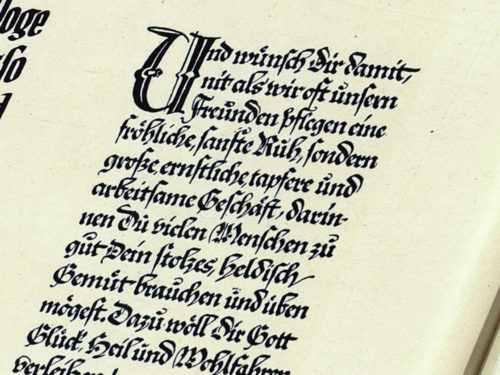 Und wünsch Dir damit,
nit als wir oft unsern
Freunden pflegen eine
fröhliche, sanfte Ruh, sondern
große, ernstliche, tapfere und
arbeitsame Geschäft, darin-
nen Du vielen Menschen zu
gut Dein stolzes, heldisch
Gemüt brauchen und üben
mögest. Dazu wöll Dir Gott
Glück, Heil und Wohlfahren
verleihen!